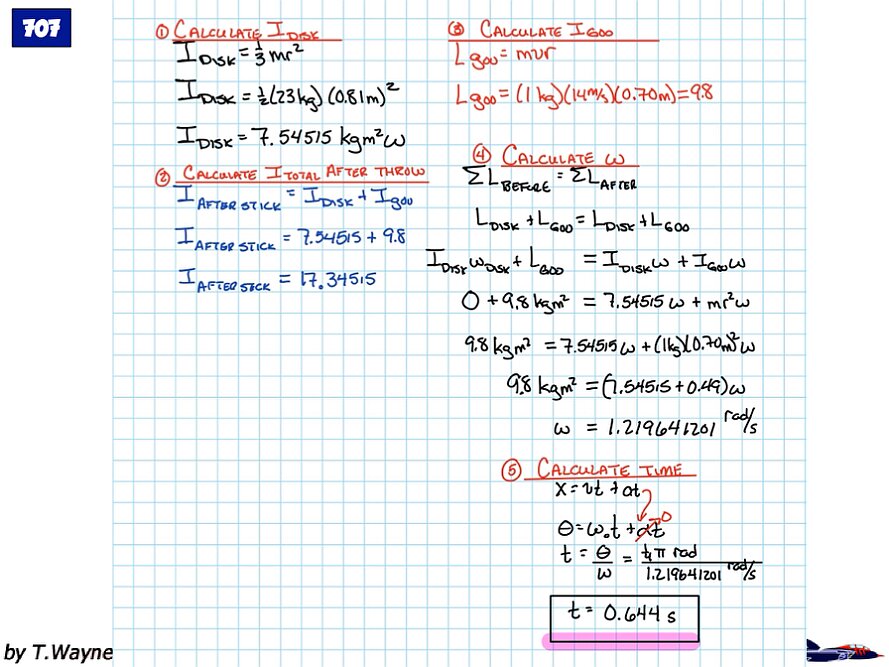 707
① CALCULATE I DISK
I DISK = ⅓ mr²
I DISK = ½(23kg)(0.81m)²
I DISK = 7.54515 kgm²ω
② CALCULATE I TOTAL AFTER THROW
I AFTER STICK = I DISK + I goo
I AFTER STICK = 7.54515 + 9.8
I AFTER STICK = 17.34515
③ CALCULATE I GOO
L goo = mvr
L goo = (1 kg)(14 m/s)(0.70m) = 9.8
④ CALCULATE ω
ΣL BEFORE = ΣL AFTER
L DISK + L GOO = L DISK + L GOO
I DISK ω DISK + L GOO = I DISK ω + I GOO ω
0 + 9.8 kgm² = 7.54515 ω + mr²ω
9.8 kgm² = 7.54515 ω + (1kg)(0.70m)²ω
9.8 kgm² = (7.54515 + 0.49)ω
ω = 1.219641201 rad/s
⑤ CALCULATE TIME
x = vt + at
θ = ω₀t + αt 0
t = θ/ω = ¼π rad / 1.219641201 rad/s
t = 0.644 s
by T.Wayne